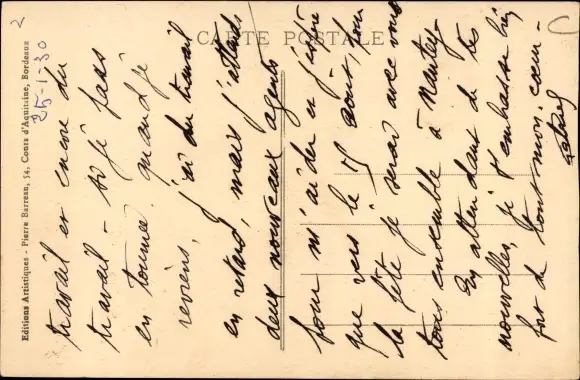 CARTE POSTALE
Editions Artistiques - Pierre Barreau, 54, Cours d'Aquitaine, Bordeaux
2
25-1-30
travail et encore du
travail - si je pars
en tournée, quand je
reviens, j'ai du travail
en retard, mais j'attends
deux nouveaux agents
pour m'aider et j'espère
que vers le 15 août, pour
la fête je serai avec vous
tous ensemble à Nantey.
En attendant de tes
nouvelles, je t'embrasse bien
fort de tout mon cœur.
C